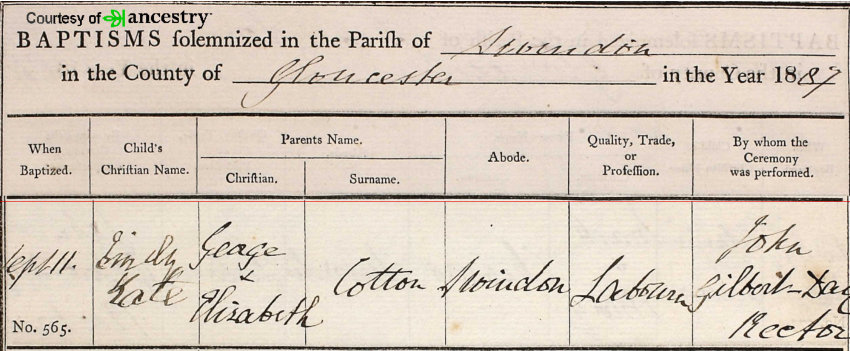 Courtesy of ancestry
BAPTISMS ſolemnized in the Pariſh of Swindon
in the County of Gloucester in the Year 1887
When
Baptized.
Child's
Chriſtian Name.
Parents Name.
Chriſtian.
Surname.
Abode.
Quality, Trade,
or
Profeſſion.
By whom the
Ceremony
was performed.
Sept 11.
No. 565.
Emily
Kate
George
&
Elizabeth
Cotton
Swindon
Labourer
John
Gilbert-Day
Rector